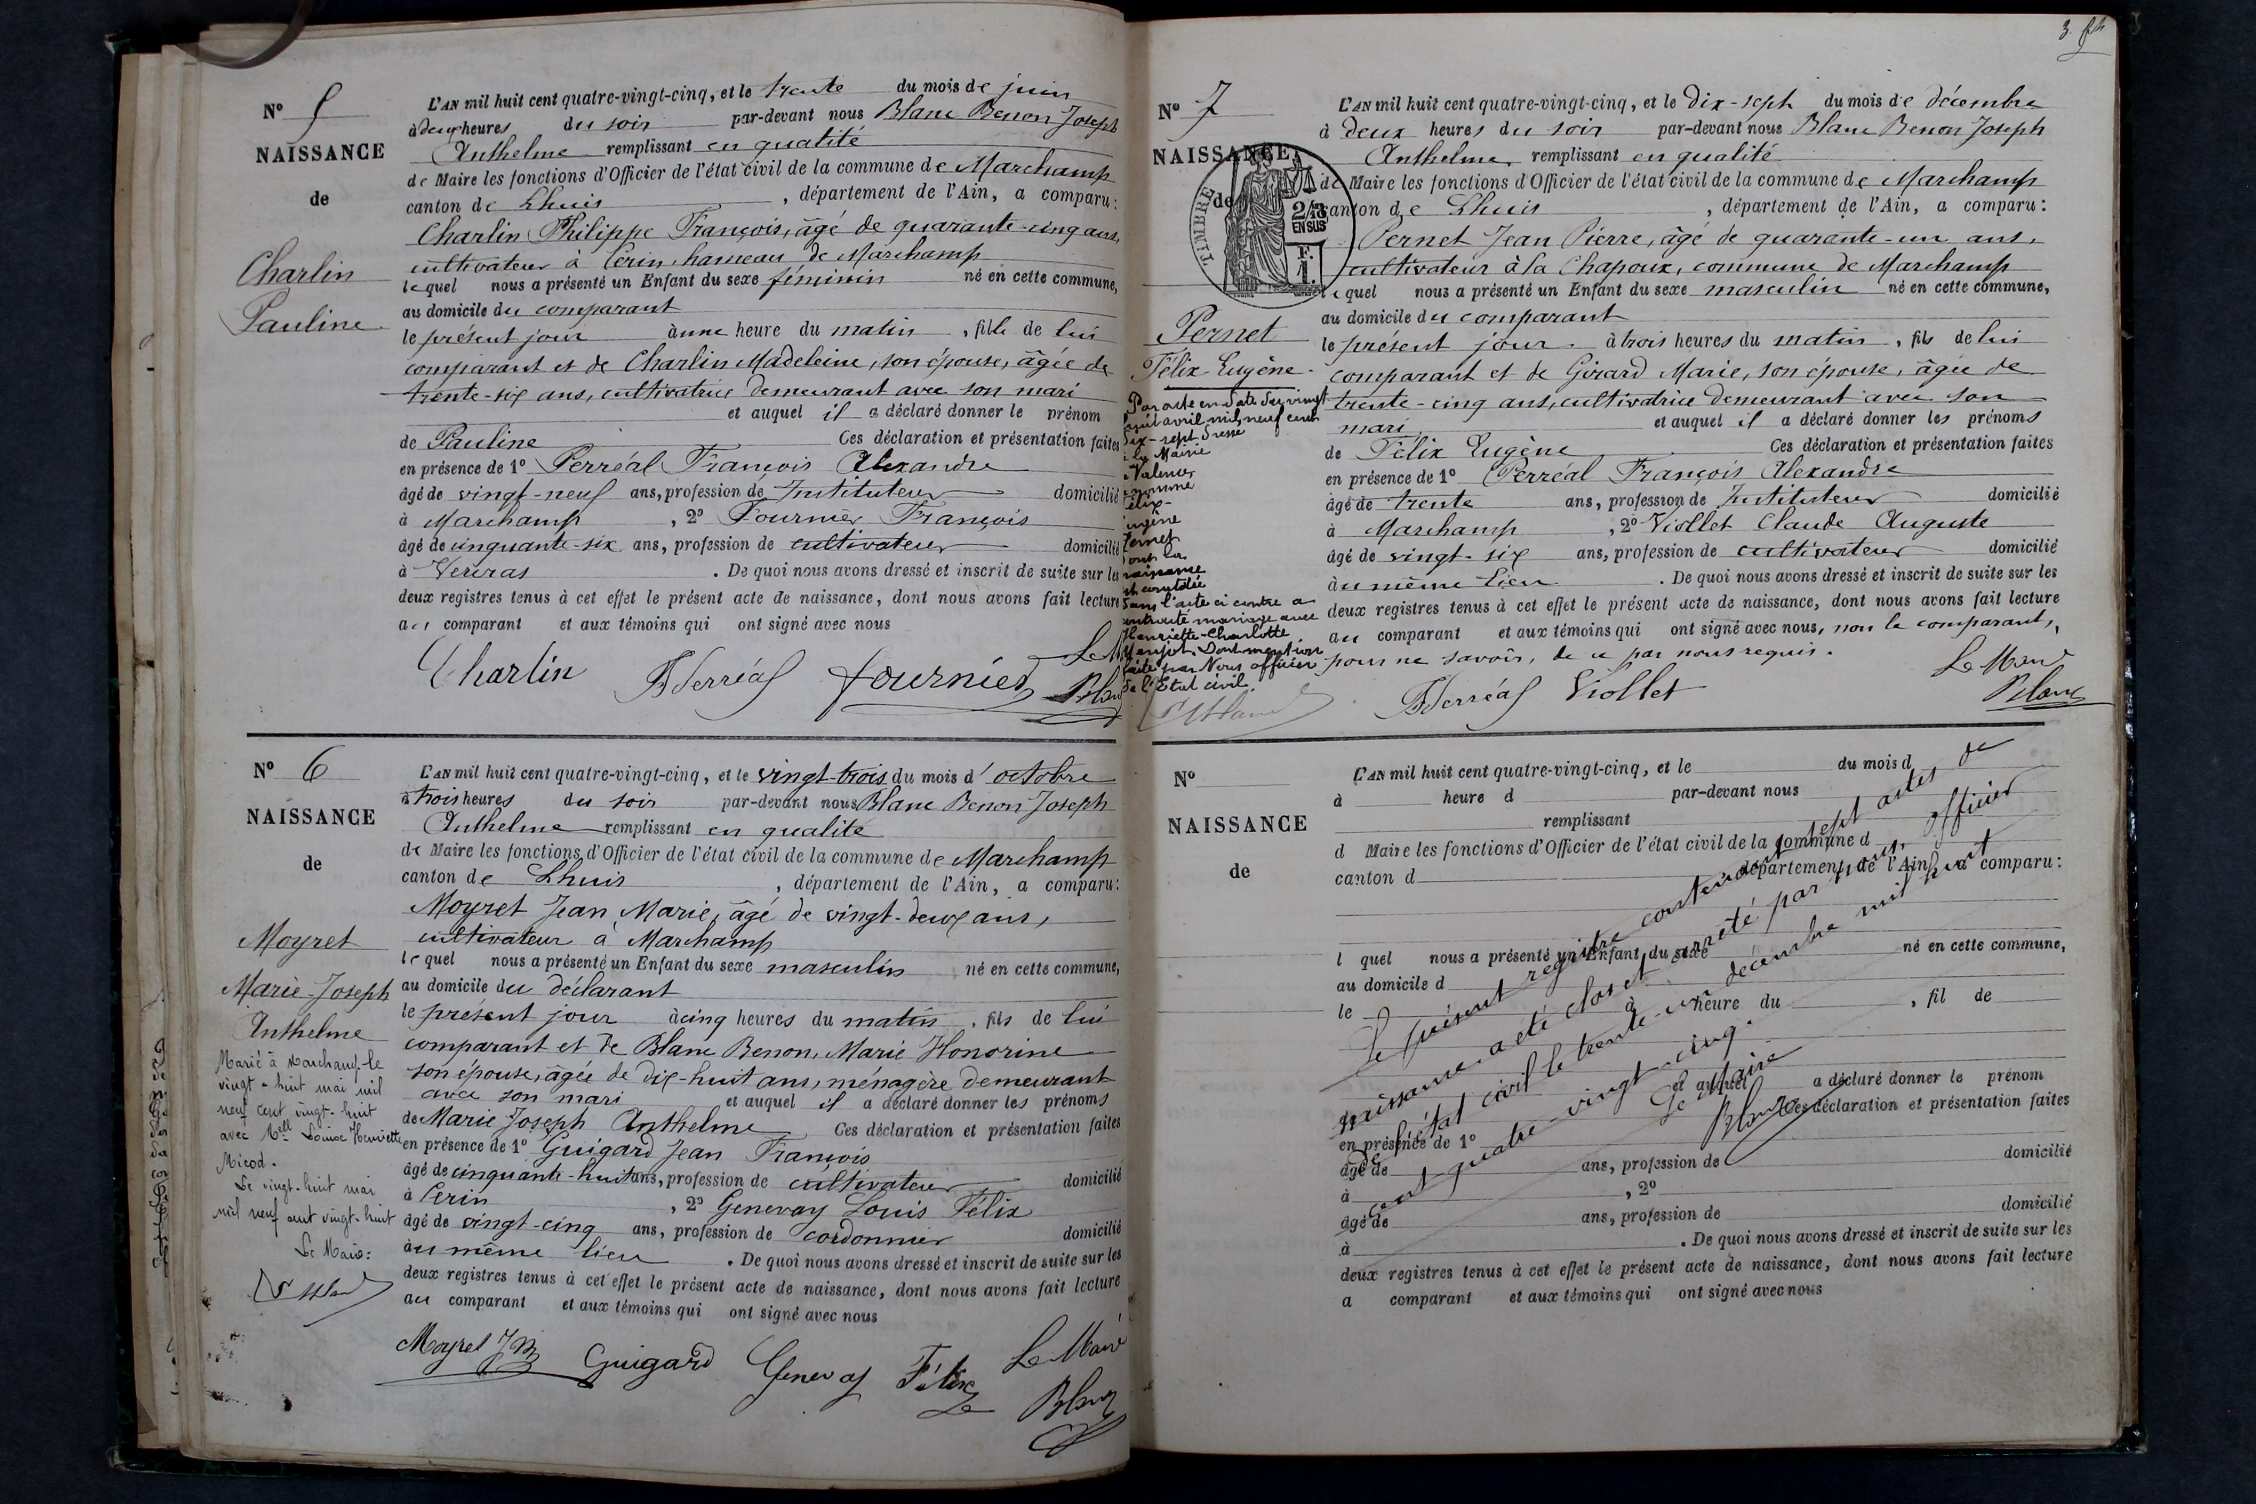 Nº 5
NAISSANCE
de
Charlin
Pauline
L'AN mil huit cent quatre-vingt-cinq, et le trente du mois de juin
à deux heures du soir par-devant nous Blanc Benon Joseph
Anthelme remplissant en qualité
de Maire les fonctions d'Officier de l'état civil de la commune de Marchamp
canton de Lhuis, département de l'Ain, a comparu:
Charlin Philippe François, âgé de quarante-cinq ans,
cultivateur à Cerin, hameau de Marchamp
lequel nous a présenté un Enfant du sexe féminin né en cette commune,
au domicile du comparant
le présent jour à une heure du matin, fille de lui
comparant et de Charlin Madeleine, son épouse, âgée de
trente-six ans, cultivatrice demeurant avec son mari
et auquel il a déclaré donner le prénom
de Pauline Ces déclaration et présentation faites
en présence de 1º Perréal François Alexandre
âgé de vingt-neuf ans, profession de Instituteur domicilié
à Marchamp, 2º Fournier François
âgé de cinquante-six ans, profession de cultivateur domicilié
à . De quoi nous avons dressé et inscrit de suite sur les
deux registres tenus à cet effet le présent acte de naissance, dont nous avons fait lecture
au comparant et aux témoins qui ont signé avec nous
Charlin Perréal fournier Le M
Blan
Nº 6
NAISSANCE
de
Moyret
Marie-Joseph
Anthelme
Marié à Marchamp le
vingt-huit mai mil
neuf cent vingt-huit
avec Mell Louise Henriette
Micod.
Le vingt-huit mai
mil neuf cent vingt-huit
Le Maire:
L'AN mil huit cent quatre-vingt-cinq, et le vingt-trois du mois d'octobre
à trois heures du soir par-devant nous Blanc Benon Joseph
Anthelme remplissant en qualité
de Maire les fonctions d'Officier de l'état civil de la commune de Marchamp
canton de Lhuis, département de l'Ain, a comparu:
Moyret Jean Marie, âgé de vingt-deux ans,
cultivateur à Marchamp
lequel nous a présenté un Enfant du sexe masculin né en cette commune,
au domicile du déclarant
le présent jour à cinq heures du matin, fils de lui
comparant et de Blanc Benon, Marie Honorine
son épouse, âgée de dix-huit ans, ménagère demeurant
avec son mari et auquel il a déclaré donner les prénoms
de Marie Joseph Anthelme Ces déclaration et présentation faites
en présence de 1º Guigard Jean François
âgé de cinquante-huit ans, profession de cultivateur domicilié
à Cerin, 2º Genevay Louis Félix
âgé de vingt-cinq ans, profession de cordonnier domicilié
au même lieu. De quoi nous avons dressé et inscrit de suite sur les
deux registres tenus à cet effet le présent acte de naissance, dont nous avons fait lecture
au comparant et aux témoins qui ont signé avec nous
Moyret JM Guigard Genevay Félix Le Maire
Blanc
Nº 7
NAISSANCE
de
TIMBRE
2/10
EN SUS
F.
1.
Pernet
Félix Eugène
Par acte en date du vingt
avril mil neuf cent
dix-sept dressé
Mairie
Valence
Félix-
Eugène
Pernet
dont la
naissance
est constatée
dans l'acte ci contre a
contracté mariage avec
Henriette-Charlotte
. Dont mention
faite par Nous officier
de l'Etat civil.
L'AN mil huit cent quatre-vingt-cinq, et le dix-sept du mois de décembre
à deux heures du soir par-devant nous Blanc Benon Joseph
Anthelme remplissant en qualité
de Maire les fonctions d'Officier de l'état civil de la commune de Marchamp
canton de Lhuis, département de l'Ain, a comparu:
Pernet Jean Pierre, âgé de quarante-un ans,
cultivateur à la Chapoux, commune de Marchamp
lequel nous a présenté un Enfant du sexe masculin né en cette commune,
au domicile du comparant
le présent jour à trois heures du matin, fils de lui
comparant et de Girard Marie, son épouse, âgée de
trente-cinq ans, cultivatrice demeurant avec son
mari et auquel il a déclaré donner les prénoms
de Félix Eugène Ces déclaration et présentation faites
en présence de 1º Perréal François Alexandre
âgé de trente ans, profession de Instituteur domicilié
à Marchamp, 2º Viollet Claude Auguste
âgé de vingt-six ans, profession de cultivateur domicilié
au même lieu. De quoi nous avons dressé et inscrit de suite sur les
deux registres tenus à cet effet le présent acte de naissance, dont nous avons fait lecture
au comparant et aux témoins qui ont signé avec nous, non le comparant,
pour ne savoir, de ce par nous requis.
Perréal Viollet Le Maire
Blanc
Nº
NAISSANCE
de
L'AN mil huit cent quatre-vingt-cinq, et le du mois d
à heure d par-devant nous
remplissant
d Maire les fonctions d'Officier de l'état civil de la commune d
canton d département de l'Ain, a comparu:
l quel nous a présenté un Enfant du sexe né en cette commune,
au domicile d
le à heure du , fil de
et auquel a déclaré donner le prénom
Ces déclaration et présentation faites
en présence de 1º
âgé de ans, profession de domicilié
à , 2º
âgé de ans, profession de domicilié
à . De quoi nous avons dressé et inscrit de suite sur les
deux registres tenus à cet effet le présent acte de naissance, dont nous avons fait lecture
a comparant et aux témoins qui ont signé avec nous
Le présent registre contenant sept actes de
naissance a été clos et arrêté par nous, officier
de l'état civil le trente-un décembre mil huit
cent quatre-vingt-cinq.
Le Maire
Blanc